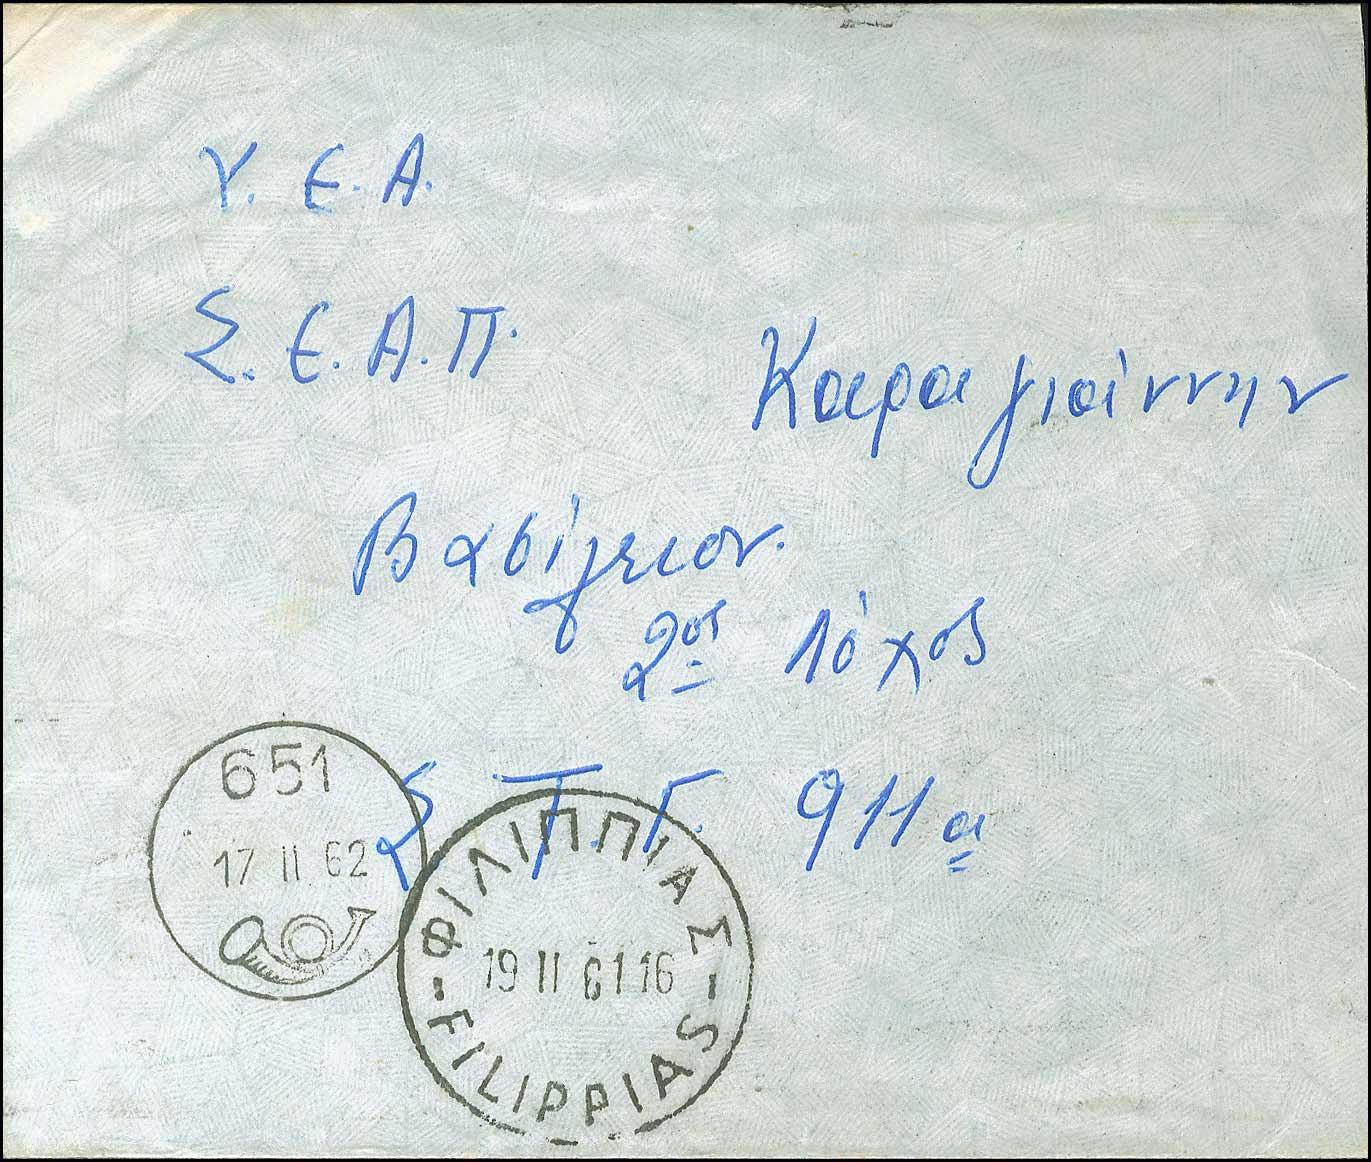 Υ. Ε. Α.
Σ. Ε. Α. Π.
Καραγιάννην
Βασίλειον.
2ος λόχος
Σ. Τ. Γ. 911α
651
17 II 62
ΦΙΛΙΠΠΙΑΣ
19 II 61 16
FILIPPIAS